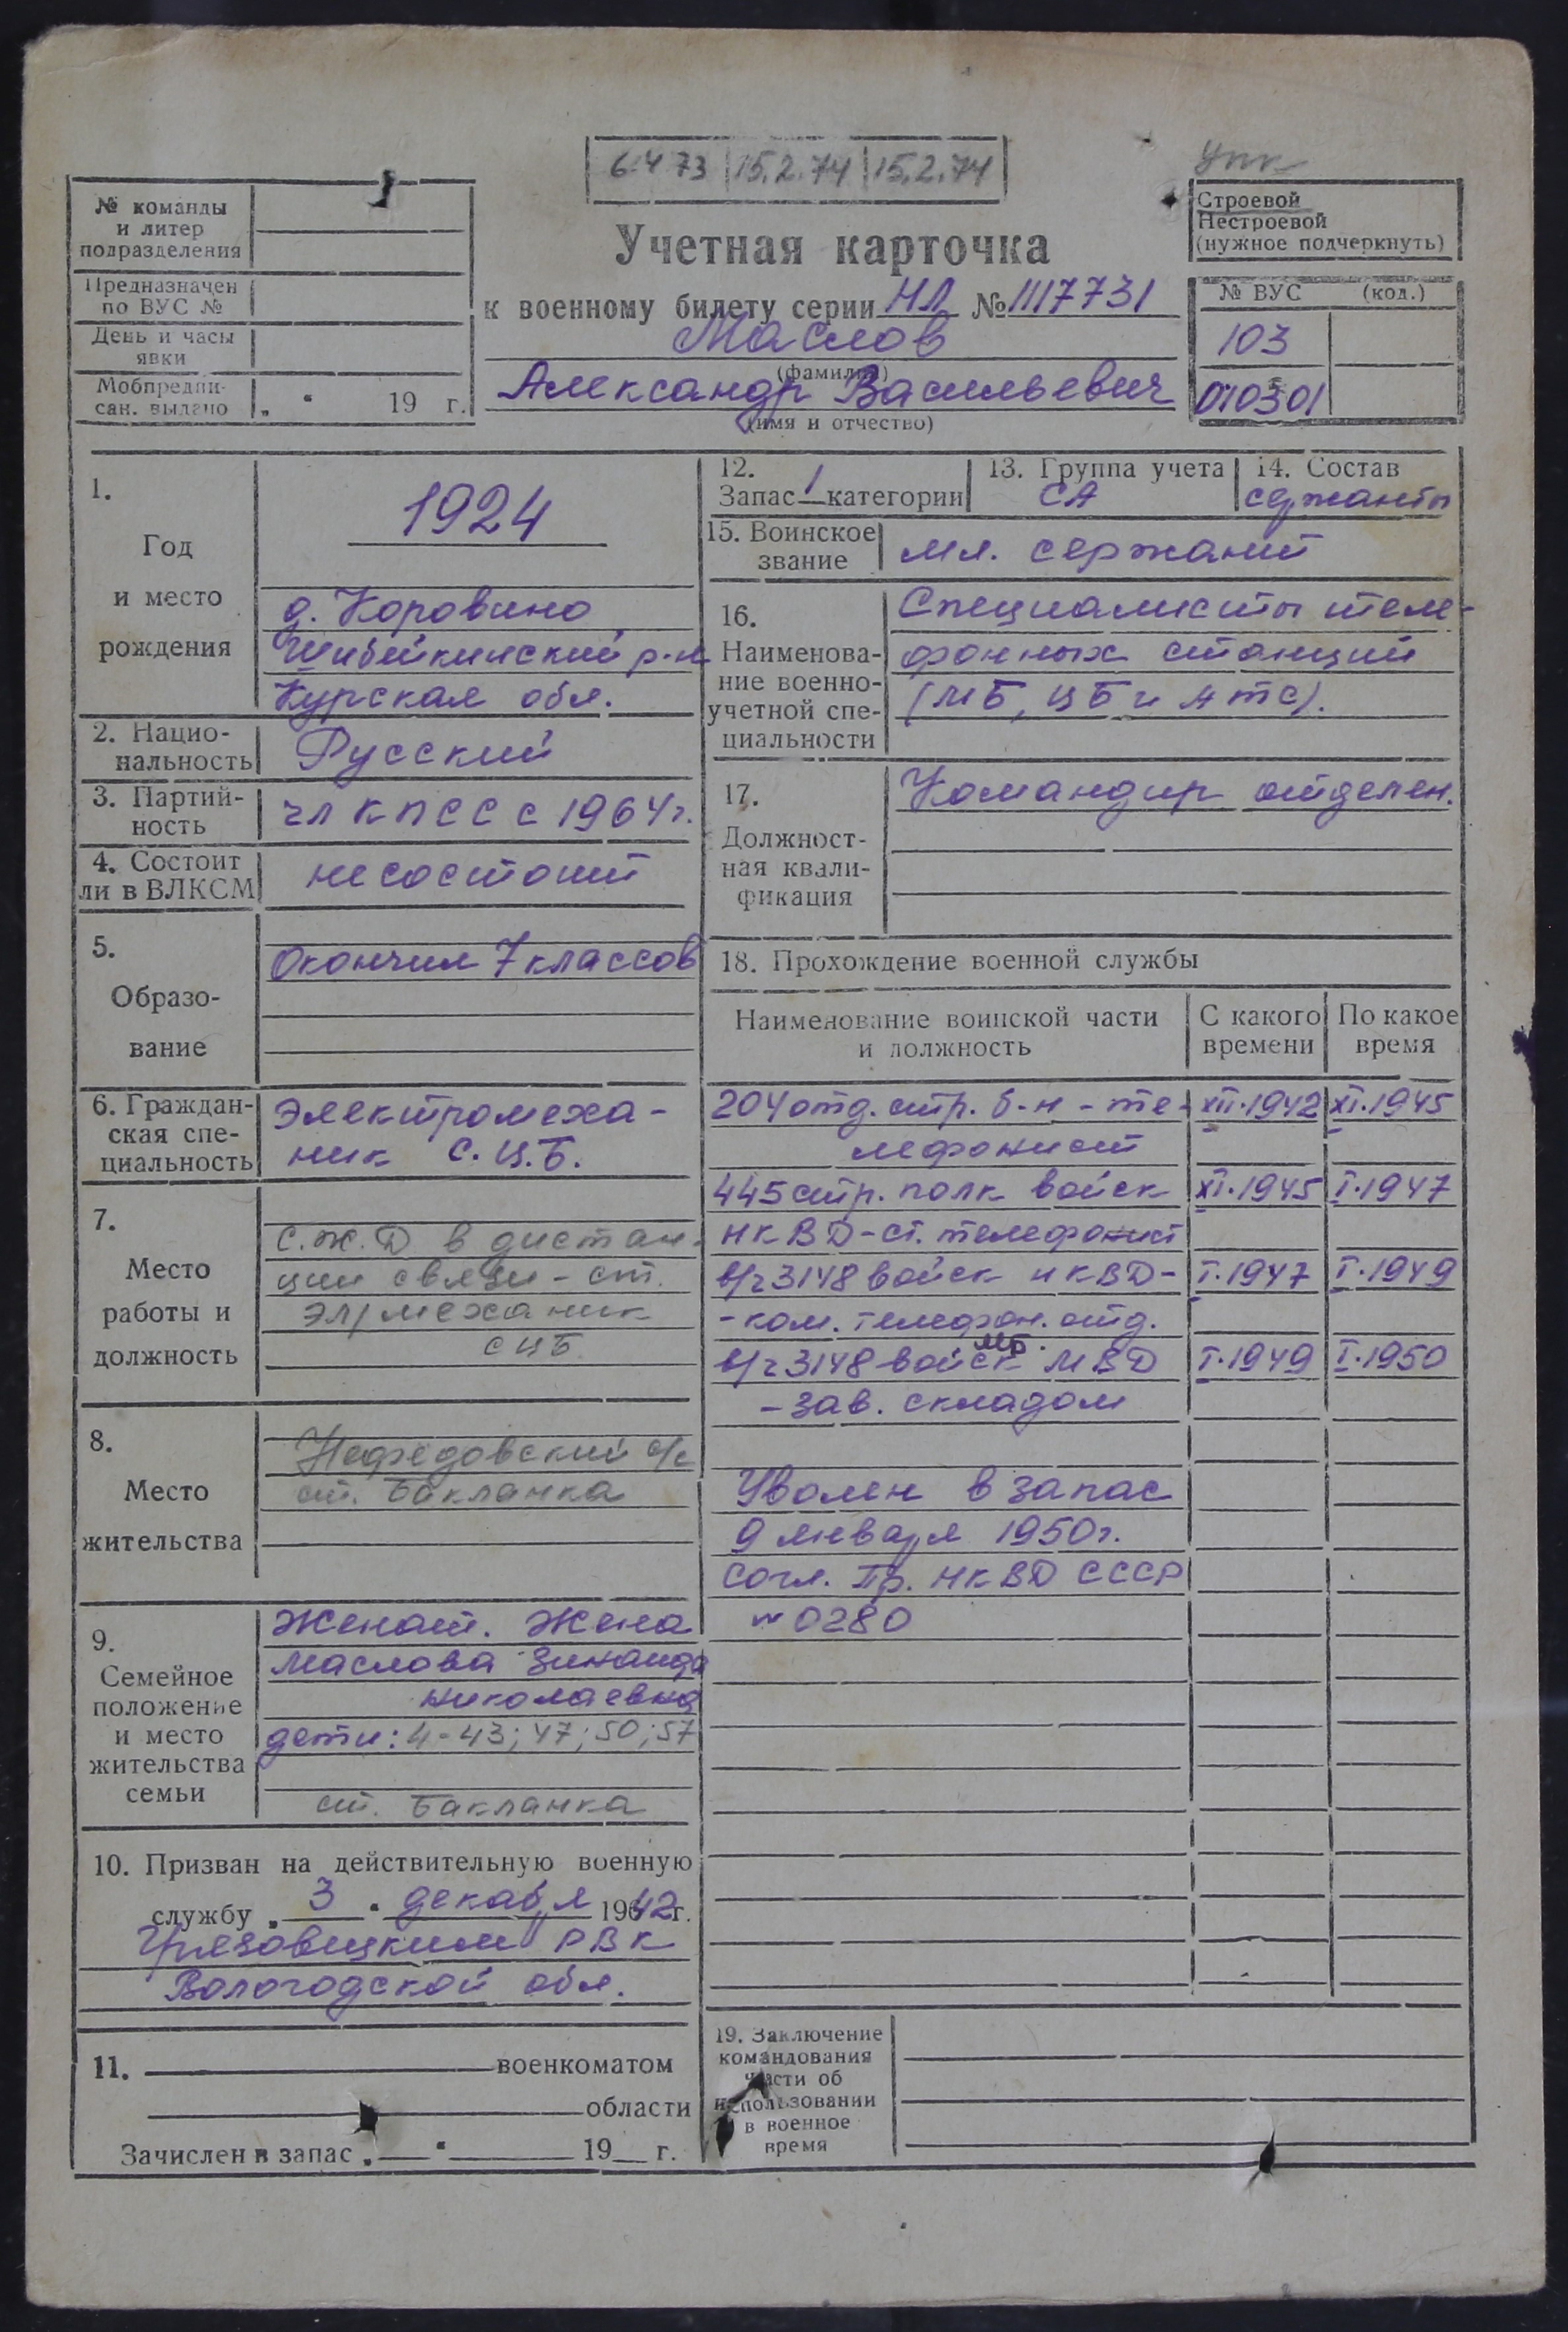 6.4 73 15.2.74 15.2.74
упк
№ команды
и литер
подразделения
Предназначен
по ВУС №
День и часы
явки
Мобпредпи-
сан. выдано „ “ 19 г.
Учетная карточка
к военному билету серии НЛ № 1117731
Маслов
(фамилия)
Александр Васильевич
(имя и отчество)
Строевой
Нестроевой
(нужное подчеркнуть)
№ ВУС (код.)
103
010301
1.
Год
и место
рождения
1924
д. Коровино
Шибекинский р-н
Курская обл.
2. Нацио-
нальность
Русский
3. Партий-
ность
чл КПСС с 1964г.
4. Состоит
ли в ВЛКСМ
не состоит
5.
Образо-
вание
Окончил 7 классов
6. Граждан-
ская спе-
циальность
Электромеха-
ник С.Ц.Б.
7.
Место
работы и
должность
С.Ж.Д в дистан-
ции связи - ст.
эл/механик
СЦБ
8.
Место
жительства
Нефедовский с/с
ст. Бакланка
9.
Семейное
положение
и место
жительства
семьи
Женат. Жена
Маслова Зинаида
Николаевна
дети: 4-43; 47; 50; 57
ст. Бакланка
10. Призван на действительную военную
службу „ 3 “ декабря 1942 г.
Грязовецким РВК
Вологодской обл.
11. военкоматом
области
Зачислен в запас „ “ 19 г.
12.
Запас 1 категории
13. Группа учета
СА
14. Состав
сержанты
15. Воинское
звание
мл. сержант
16.
Наименова-
ние военно-
учетной спе-
циальности
Специалисты теле-
фонных станций
(МБ, ЦБ и АТС).
17.
Должност-
ная квали-
фикация
Командир отделен.
18. Прохождение военной службы
Наименование воинской части
и должность
С какого
времени
По какое
время
204 отд. стр. б-н - те- XII.1942 XI.1945
лефонист
445 стр. полк войск XI.1945 I.1947
НКВД - ст. телефонист
в/ч 3148 войск НКВД- I.1947 I.1949
- ком. телефон. отд.
МБ.
в/ч 3148 войск МВД I.1949 I.1950
- зав. складом
Уволен в запас
9 января 1950г.
согл. Пр. НКВД СССР
№ 0280
19. Заключение
командования
части об
использовании
в военное
время